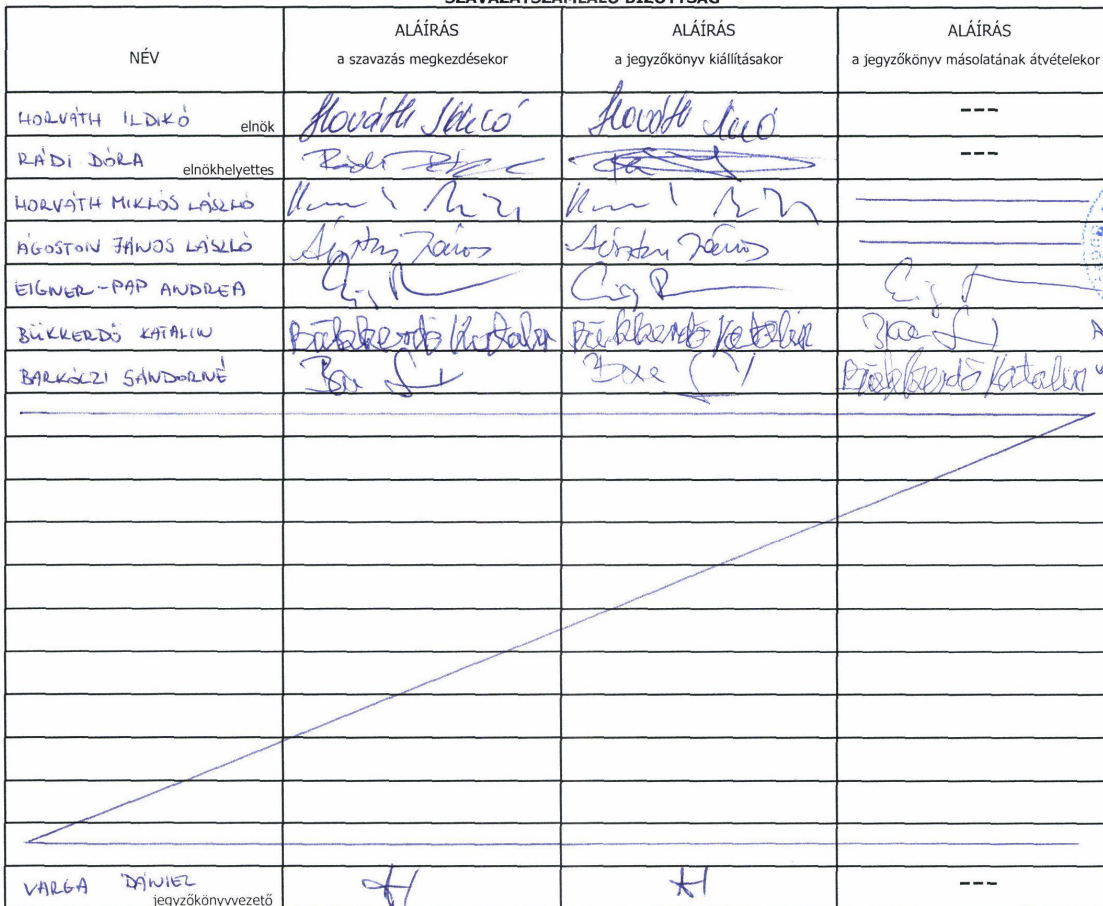 SZAVAZATSZÁMLÁLÓ BIZOTTSÁG
NÉV
ALÁÍRÁS
a szavazás megkezdésekor
ALÁÍRÁS
a jegyzőkönyv kiállításakor
ALÁÍRÁS
a jegyzőkönyv másolatának átvételekor
HORVÁTH ILDIKÓ elnök Horváth Ildikó Horváth Ildikó ---
RÁDI DÓRA elnökhelyettes Rádi ---
HORVÁTH MIKLÓS LÁSZLÓ
ÁGOSTON JÁNOS LÁSZLÓ Ágoston János Ágoston János
EIGNER-PAP ANDREA
BÜKKERDŐ KATALIN Bükkerdő Katalin Bükkerdő Katalin
BARKÓCZI SÁNDORNÉ Bükkerdő Katalin
VARGA DÁNIEL jegyzőkönyvvezető ---